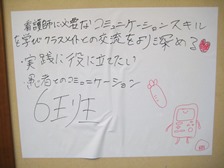 看護師に必要なコミュニケーションスキル
を学びクラスメイトとの交流をより深める
・実践に役に立てたい
患者とのコミュニケーション
6班